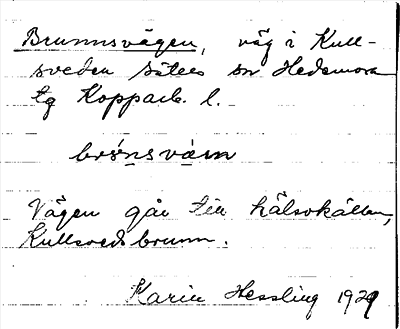 Brunnsvägen, väg i Kull-
sveden Säters sn Hedemora
tg Kopparb. l.
brónsväen
Vägen går till hälsokällan,
Kullsveds brunn.
Karin Hessling 1929